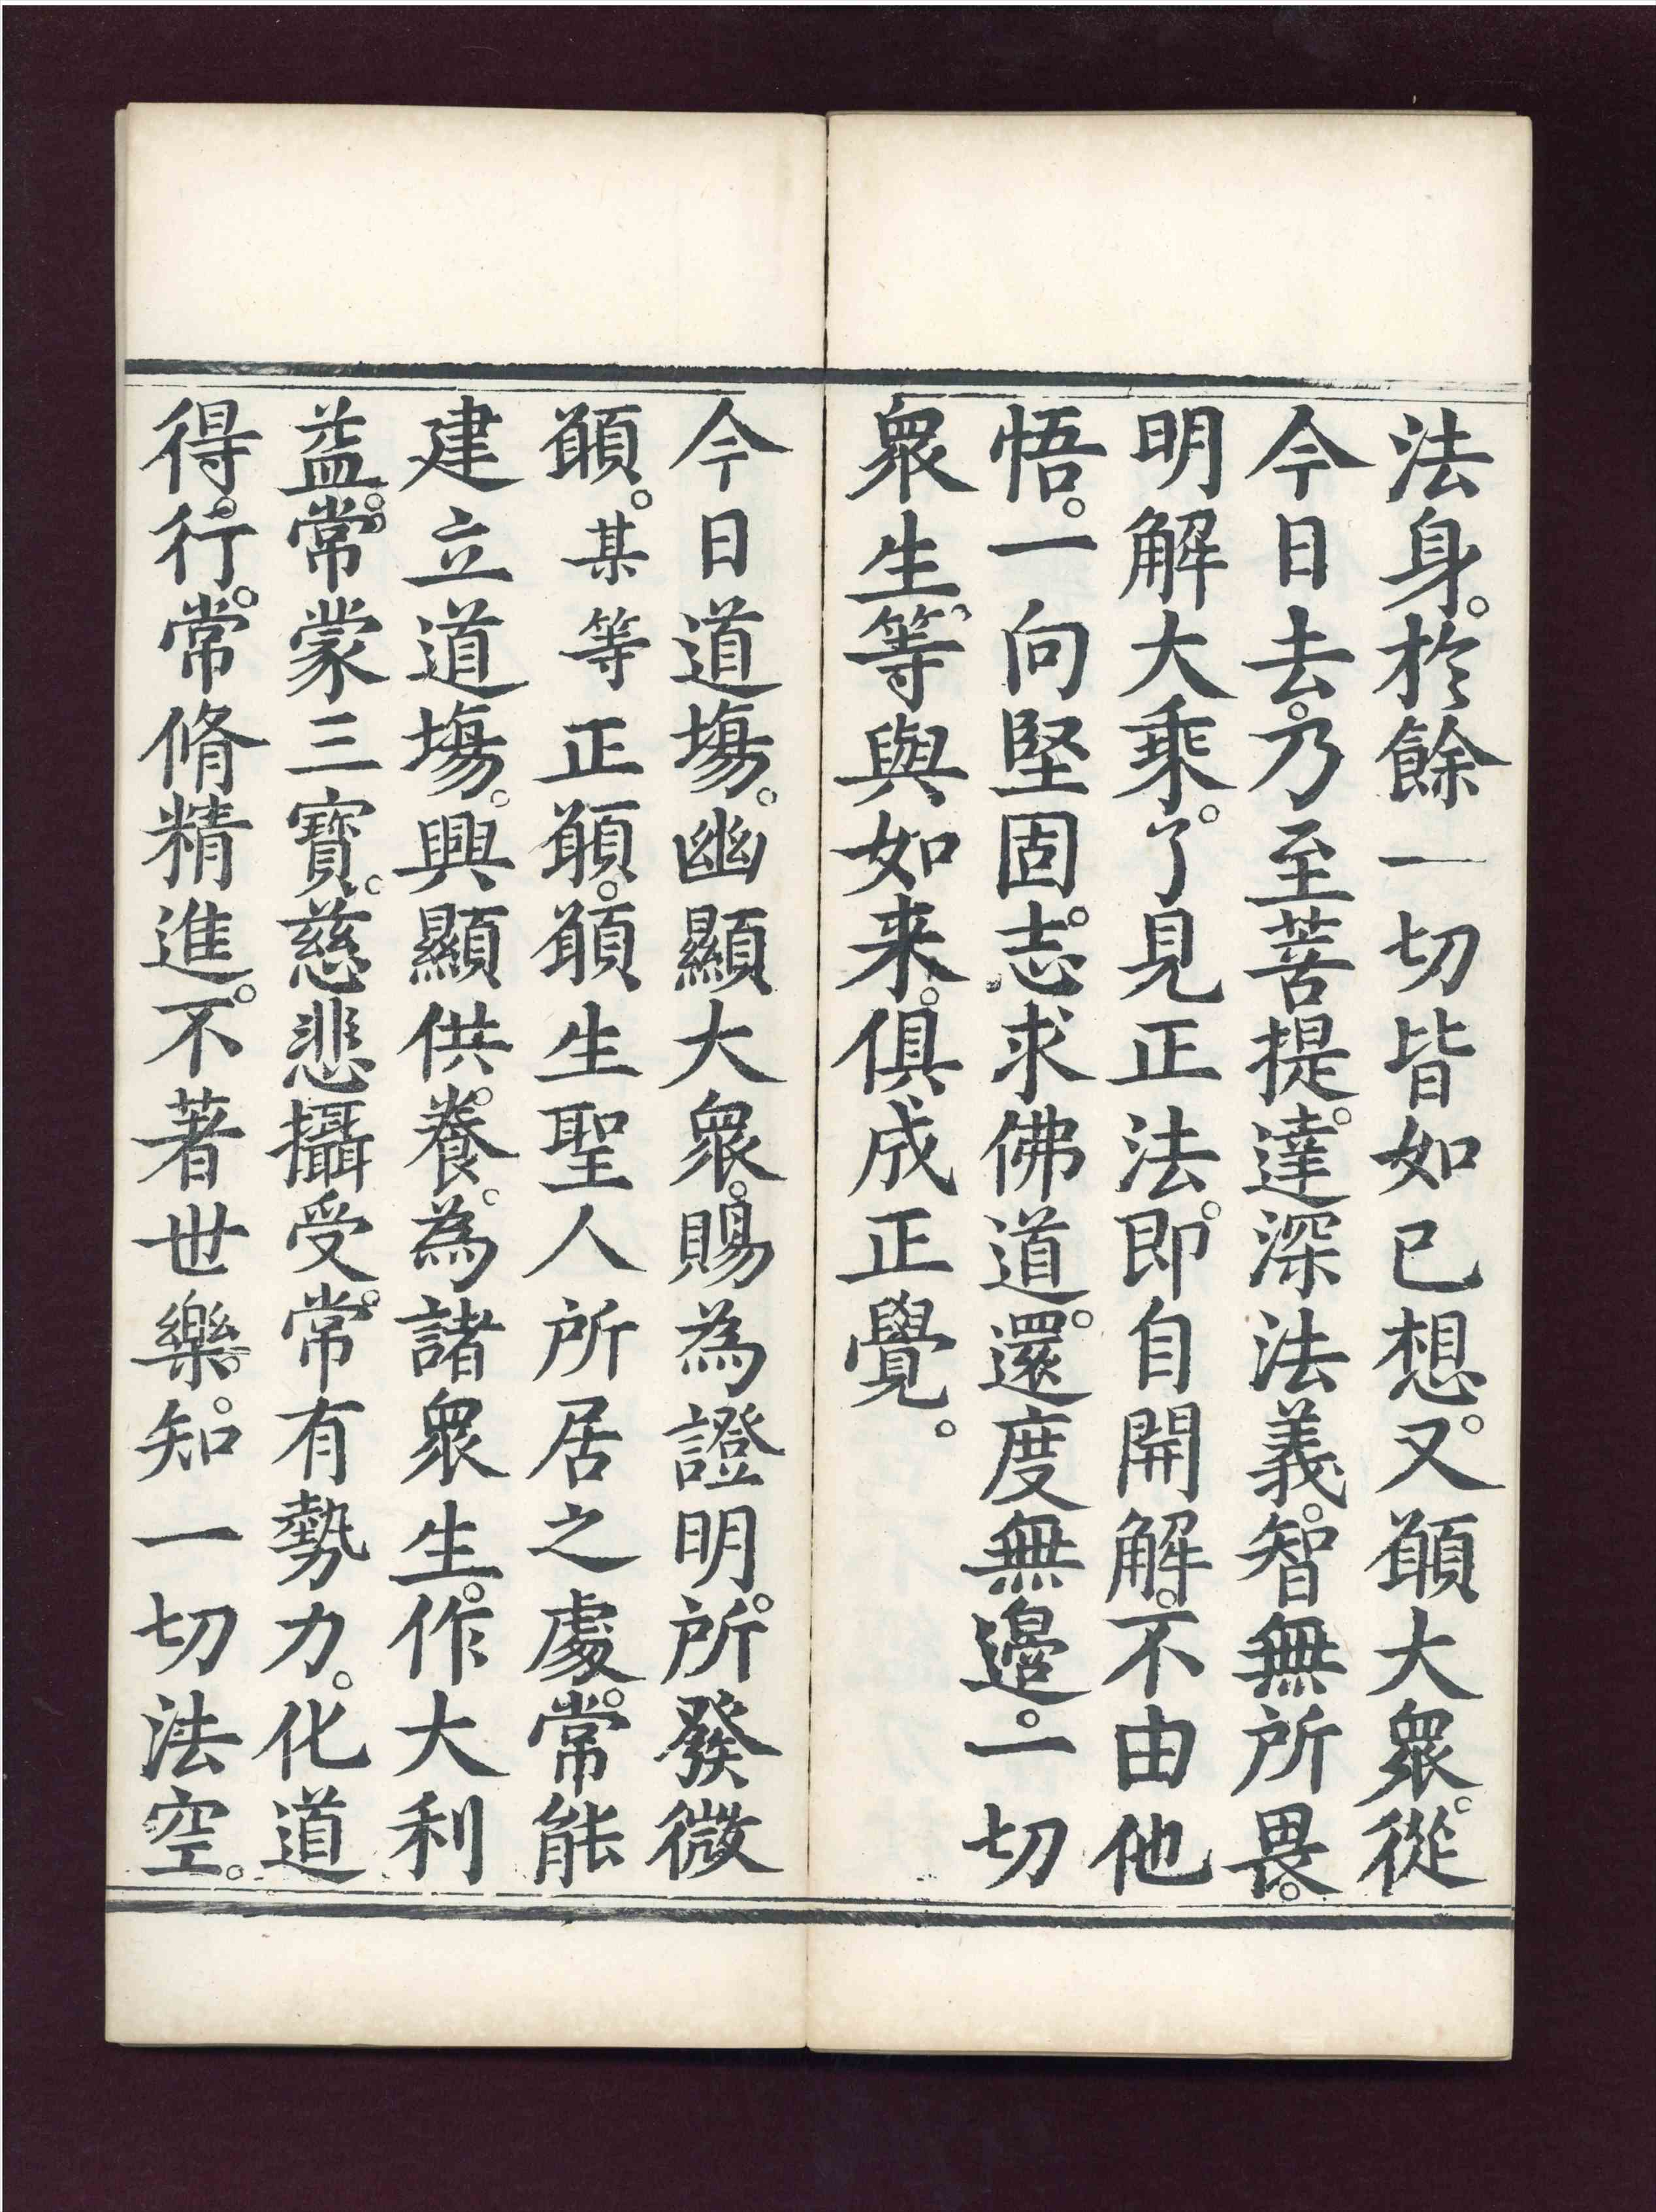 法身。於餘一切皆如已想。又願大眾。從
今日去。乃至菩提。達深法義。智無所畏。
明解大乘。了見正法。即自開解。不由他
悟。一向堅固。志求佛道。還度無邊。一切
眾生。等與如来。俱成正覺。
今日道塲。幽顯大眾。賜為證明。所發微
願。某等正願。願生聖人所居之處。常能
建立道塲。興顯供養。為諸眾生。作大利
益。常蒙三寶。慈悲攝受。常有勢力。化道
得行。常脩精進。不著世樂。知一切法空。